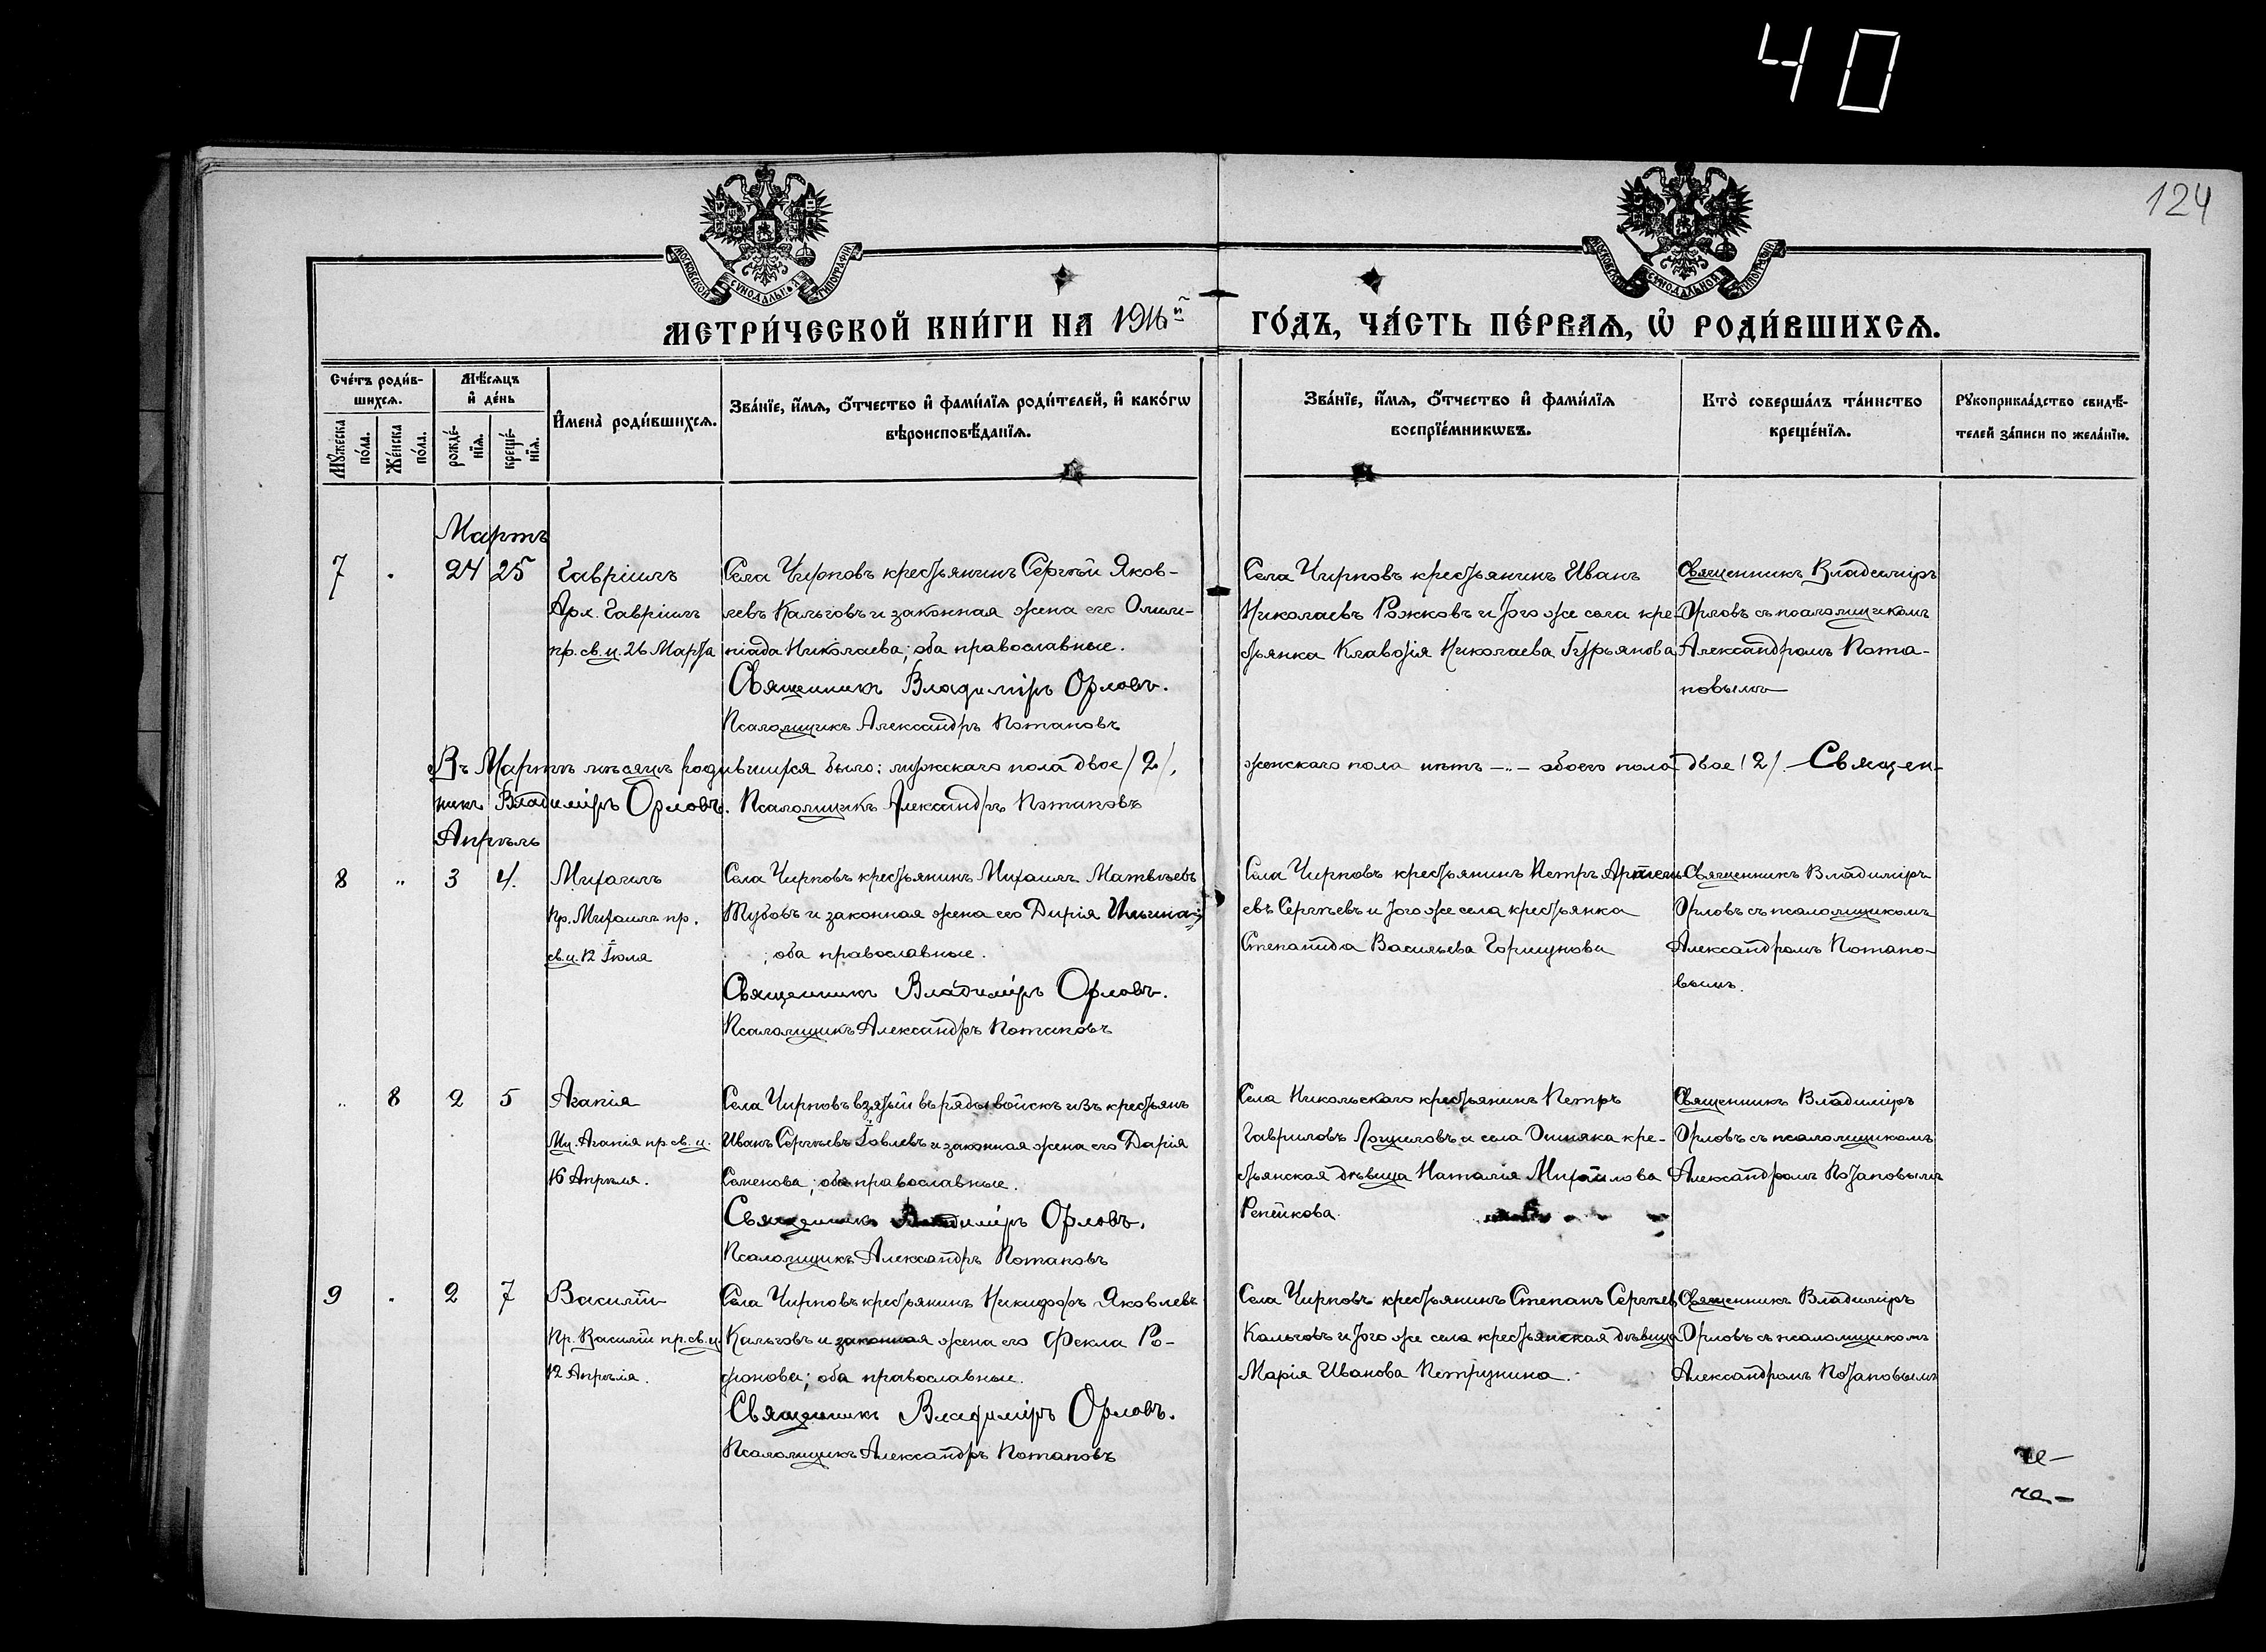 40
124
МОСКОВСКОЙ СѴНОДАЛЬНОЙ ТИПОГРАФІИ
МОСКОВСКОЙ СѴНОДАЛЬНОЙ ТИПОГРАФІИ
МЕТРИ́ЧЕСКОЙ КНИ́ГИ НА 1916й ГО́ДЪ, ЧА́СТЬ ПЕ́РВАѦ, Ѡ РОДИ́ВШИХСѦ.
Сче́тъ роди́в-
шихсѧ.
Мѣ́сѧцъ
и де́нь
Му́жеска
по́ла.
Же́нска
по́ла.
рожде́-
нїѧ.
креще́-
нїѧ.
Имена̀ роди́вшихсѧ.
Зва́нїе, и́мѧ, о́тчество и фами́лїѧ роди́телей, и како́гѡ
вѣроисповѣ́данїѧ.
Зва́нїе, и́мѧ, о́тчество и фами́лїѧ
воспрїе́мникѡвъ.
Кто̀ соверша́лъ та́инство
креще́нїѧ.
Рукоприкла́дство свидѣ́-
телей за́писи по жела́нїю.
Мартъ
7 „ 24 25 Гавріилъ
Арх. Гавріилъ
пр. св. ц. 26 Марта
Села Чирповъ крестьянинъ Сергѣй Яков-
левъ Кальговъ и законная жена его Олим-
піада Николаева; оба православные.
Священникъ Владиміръ Орловъ.
Псаломщикъ Александръ Потаповъ
Села Чирповъ крестьянинъ Иванъ
Николаевъ Рожковъ и того же села кре-
стьянка Клавдія Николаева Гурьянова
Священникъ Владиміръ
Орловъ съ псаломщикомъ
Александромъ Пота-
повымъ
Въ Мартѣ мѣсяцѣ родившихся было: мужскаго пола двое /2/, женскаго пола нѣтъ —„— обоего пола двое /2/. Священ-
никъ Владиміръ Орловъ. Псаломщикъ Александръ Потаповъ
Апрѣль
8 „ 3 4. Михаилъ
Пр. Михаилъ пр.
св. ц. 12 Іюля
Села Чирповъ крестьянинъ Михаилъ Матвѣевъ
Тубовъ и законная жена его Дарія Ильина;
; оба православные.
Священникъ Владиміръ Орловъ.
Псаломщикъ Александръ Потаповъ
Села Чирповъ крестьянинъ Петръ Артемь-
евъ Сергѣевъ и того же села крестьянка
Степанида Васильева Горшунова
Священникъ Владиміръ
Орловъ съ псаломщикомъ
Александромъ Потапо-
вымъ.
„ 8 2 5 Агапія
Мц. Агапія пр. св. ц.
16 Апрѣля.
Села Чирповъ взятый въ ряды войскъ изъ крестьянъ
Иванъ Сергѣевъ Іовлевъ и законная жена его Дарія
Семенова; оба православные.
Священникъ Владиміръ Орловъ.
Псаломщикъ Александръ Потаповъ
Села Никольскаго крестьянинъ Петръ
Гавриловъ Лощиловъ и села Ошняка кре-
стьянская дѣвица Наталія Михайлова
Репейкова.
Священникъ Владиміръ
Орловъ съ псаломщикомъ
Александромъ Потаповымъ
9 „ 2 7 Василій
Пр. Василій пр. св. ц.
12 Апрѣля.
Села Чирповъ крестьянинъ Никифоръ Яковлевъ
Кальговъ и законная жена его Фекла Ро-
діонова; оба православные.
Священникъ Владиміръ Орловъ.
Псаломщикъ Александръ Потаповъ
Села Чирповъ крестьянинъ Степанъ Сергѣевъ
Кальговъ и того же села крестьянская дѣвица
Марія Иванова Петрунина.
Священникъ Владиміръ
Орловъ съ псаломщикомъ
Александромъ Потаповымъ